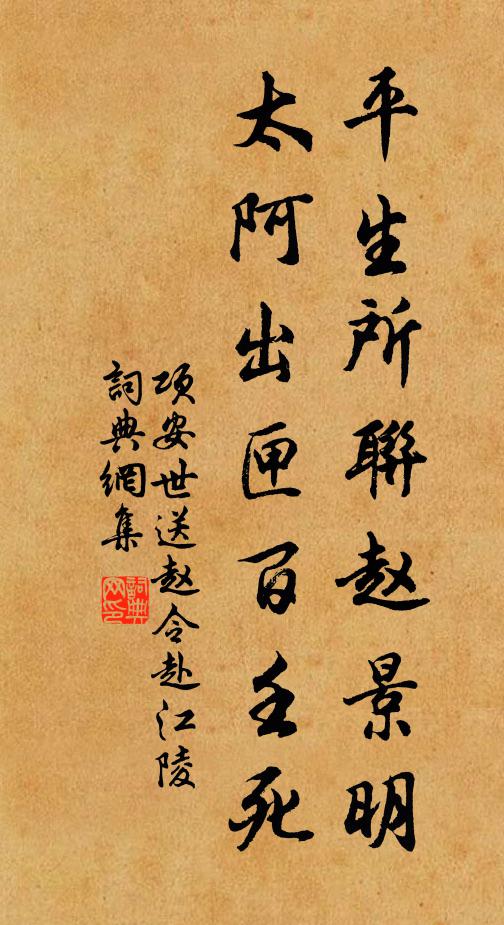 平生所聯赵景明
太阿出匣百壬死
項安世送赵令赴江陵
詞典網集
詞典網印